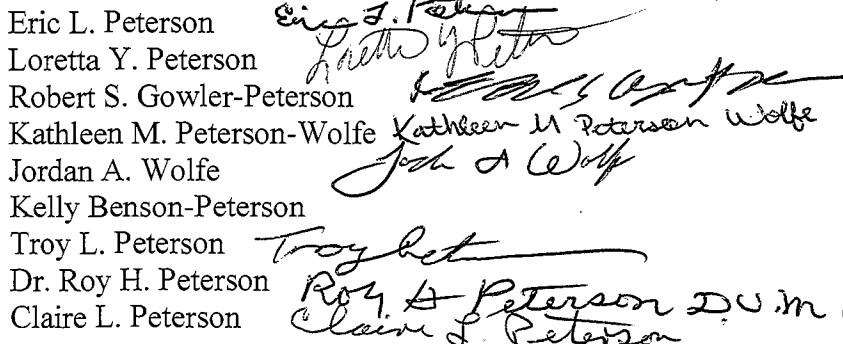 Eric L. Peterson Eric L.
Loretta Y. Peterson Loretta Y Peterson
Robert S. Gowler-Peterson
Kathleen M. Peterson-Wolfe Kathleen M Peterson Wolfe
Jordan A. Wolfe A Wolfe
Kelly Benson-Peterson
Troy L. Peterson Troy
Dr. Roy H. Peterson Roy H Peterson D.V.M.
Claire L. Peterson Claire L. Peterson